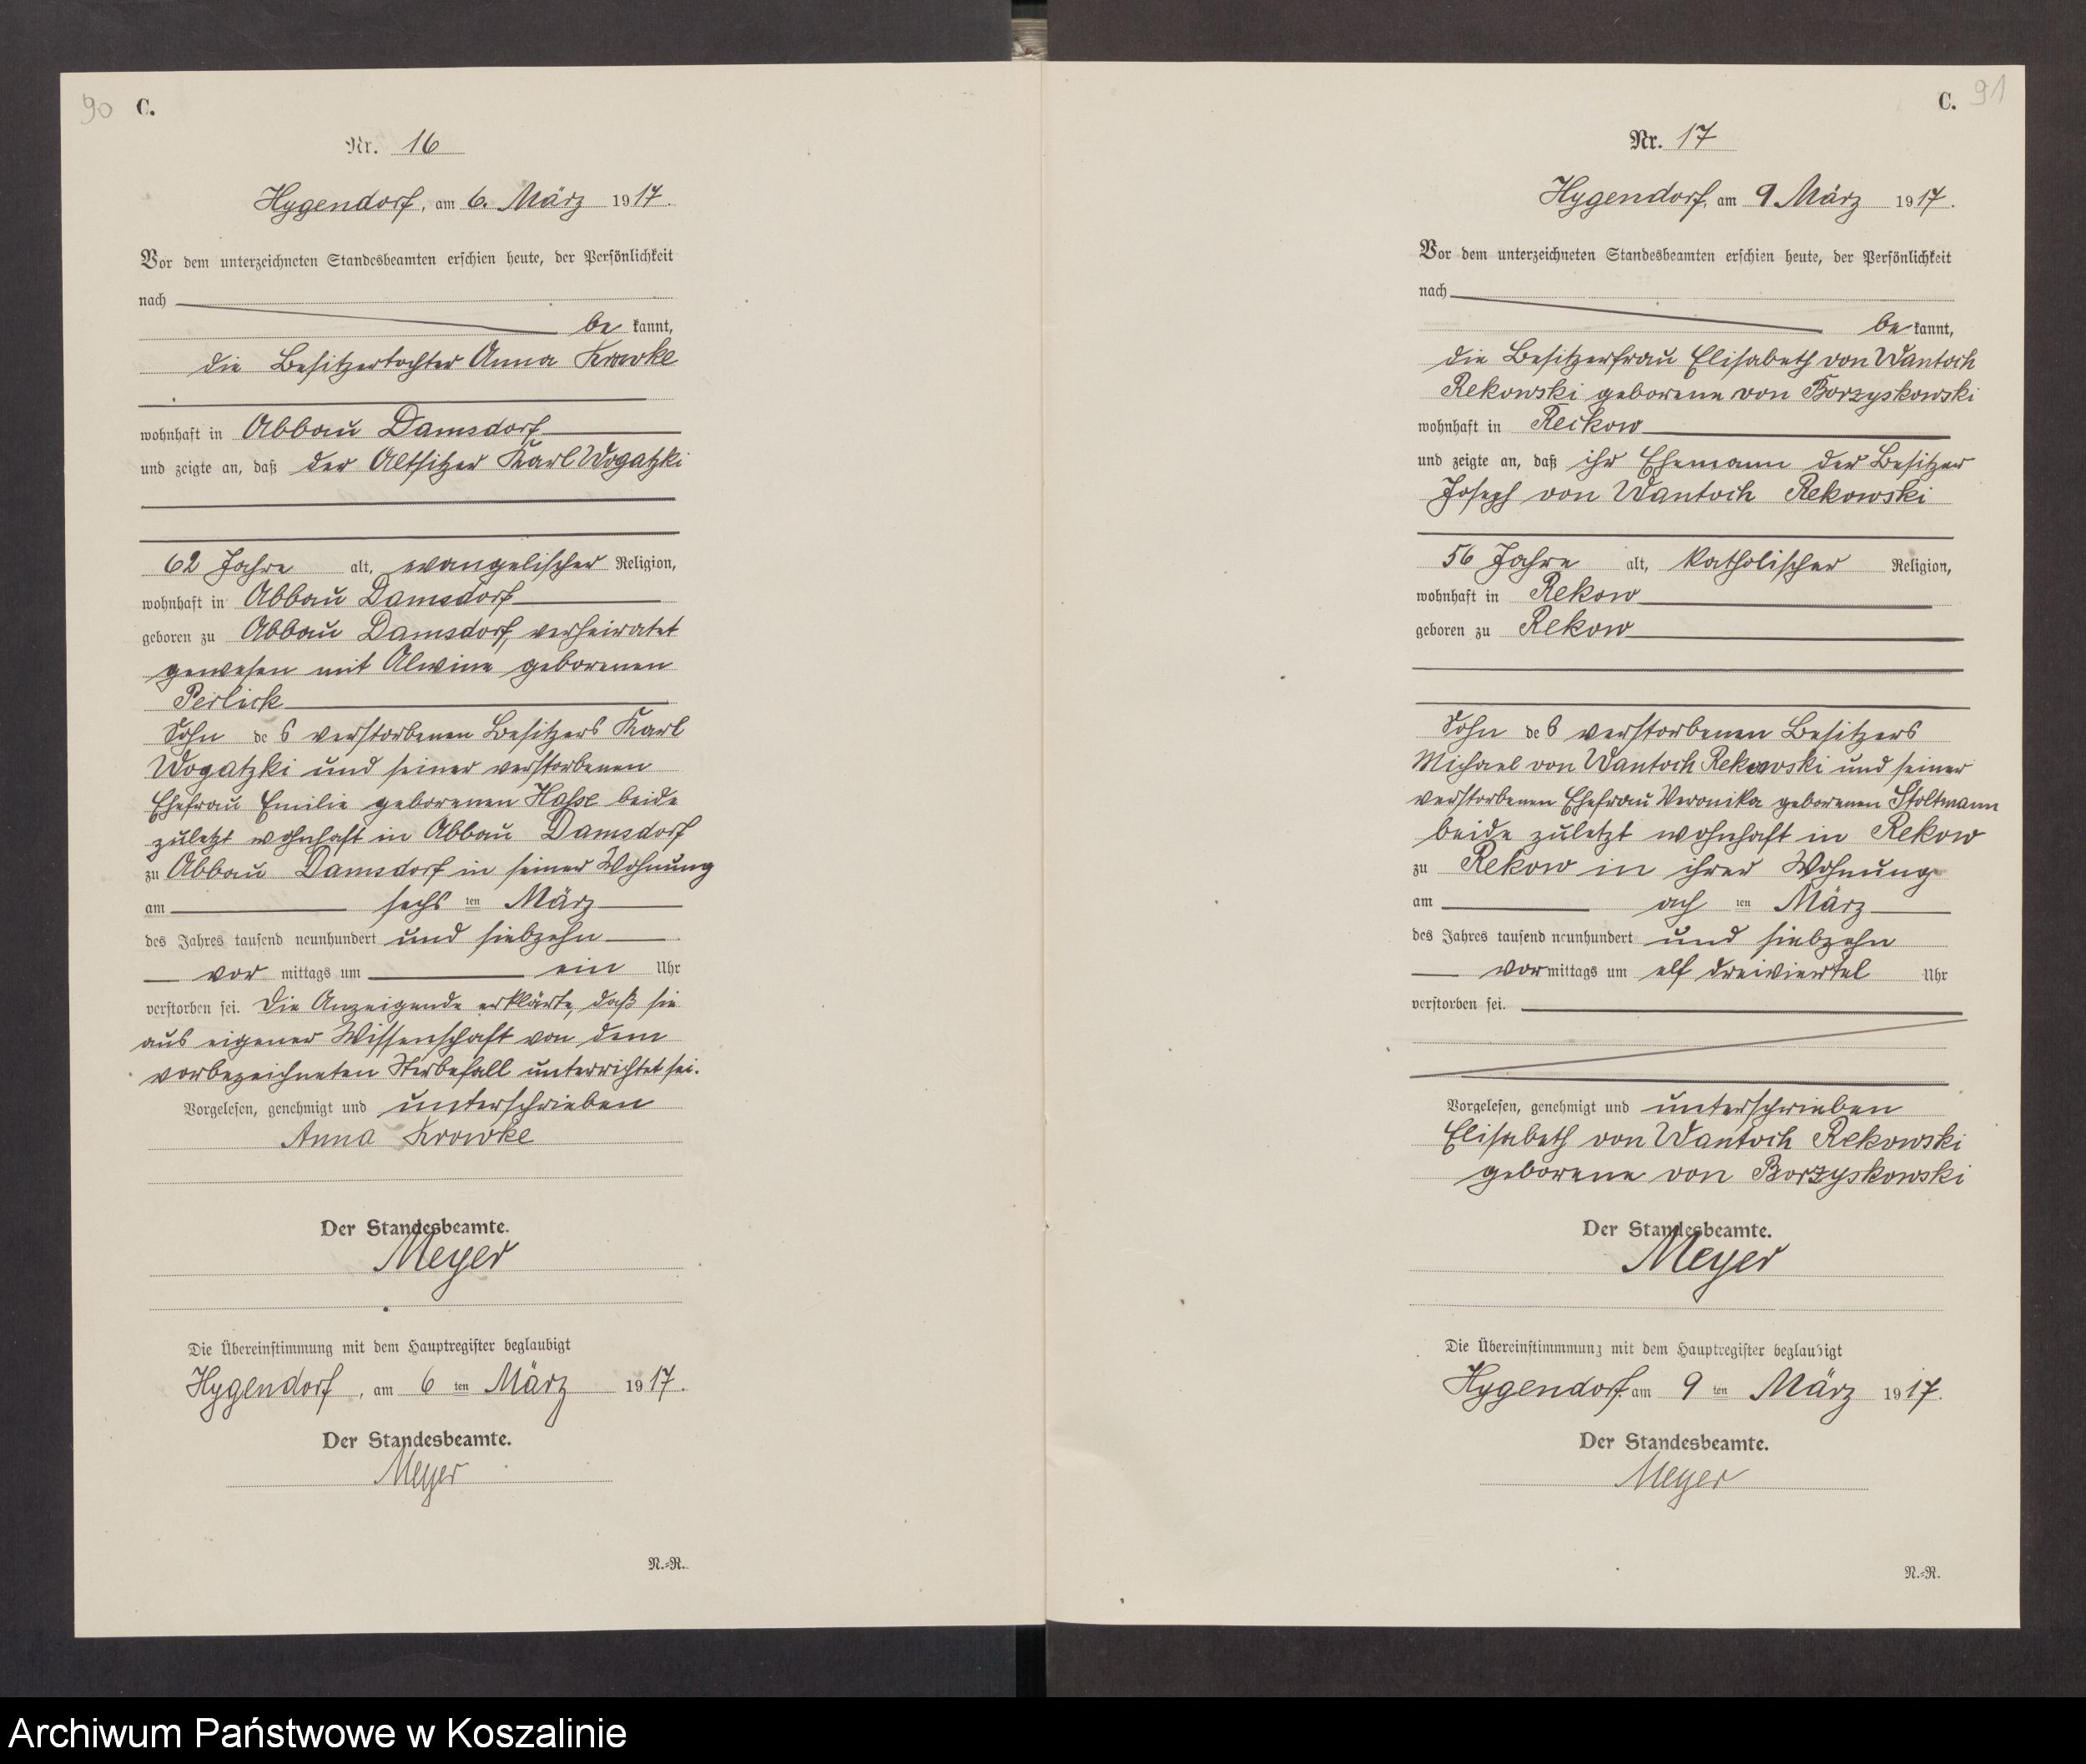 90 C.
Nr. 16
Hygendorf, am 6. März 1917.
Vor dem unterzeichneten Standesbeamten erschien heute, der Persönlichkeit
nach
be kannt,
die Besitzertochter Anna Krowke
wohnhaft in Abbau Damsdorf
und zeigte an, daß der Altsitzer Karl Wogatzki
62 Jahre alt, evangelischer Religion,
wohnhaft in Abbau Damsdorf
geboren zu Abbau Damsdorf, verheiratet
gewesen mit Alwine geborenen
Perlick
Sohn des verstorbenen Besitzers Karl
Wogatzki und seiner verstorbenen
Ehefrau Emilie geborenen Hasse beide
zuletzt wohnhaft in Abbau Damsdorf
zu Abbau Damsdorf in seiner Wohnung
am sechs ten März
des Jahres tausend neunhundert und siebzehn
vor mittags um ein Uhr
verstorben sei. Die Anzeigende erklärte, daß sie
aus eigener Wissenschaft von dem
vorbezeichneten Sterbefall unterrichtet sei.
Vorgelesen, genehmigt und unterschrieben
Anna Krowke
Der Standesbeamte.
Meyer
Die Übereinstimmung mit dem Hauptregister beglaubigt
Hygendorf, am 6 ten März 1917.
Der Standesbeamte.
Meyer
N.=R.
C. 91
Nr. 17
Hygendorf, am 9 März 1917.
Vor dem unterzeichneten Standesbeamten erschien heute, der Persönlichkeit
nach
be kannt,
die Besitzerfrau Elisabeth von Wantoch
Rekowski geborene von Borzyskowski
wohnhaft in Reckow
und zeigte an, daß ihr Ehemann der Besitzer
Joseph von Wantoch Rekowski
56 Jahre alt, katholischer Religion,
wohnhaft in Rekow
geboren zu Rekow
Sohn des verstorbenen Besitzers
Michael von Wantoch Rekowski und seiner
verstorbenen Ehefrau Veronika geborenen Stoltmann
beide zuletzt wohnhaft in Rekow
zu Rekow in ihrer Wohnung
am ach ten März
des Jahres tausend neunhundert und siebzehn
vormittags um elf dreiviertel Uhr
verstorben sei.
Vorgelesen, genehmigt und unterschrieben
Elisabeth von Wantoch Rekowski
geborene von Borzyskowski
Der Standesbeamte.
Meyer
Die Übereinstimmmung mit dem Hauptregister beglaubigt
Hygendorf am 9 ten März 1917.
Der Standesbeamte.
Meyer
N.=R.
Archiwum Państwowe w Koszalinie